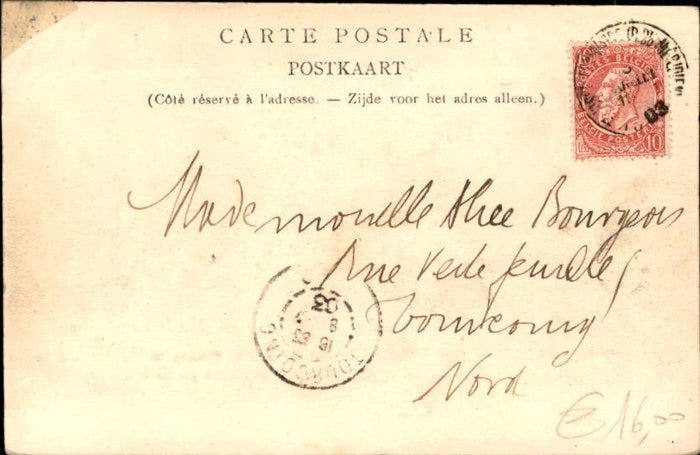 CARTE POSTALE
POSTKAART
(Côté réservé à l'adresse. — Zijde voor het adres alleen.)
BELGIE POSTERIJEN
10
03
Mademoiselle
Bourgeois
Rue Verte feuille
Tourcoing
Nord
TOURCOING
03
€16,00